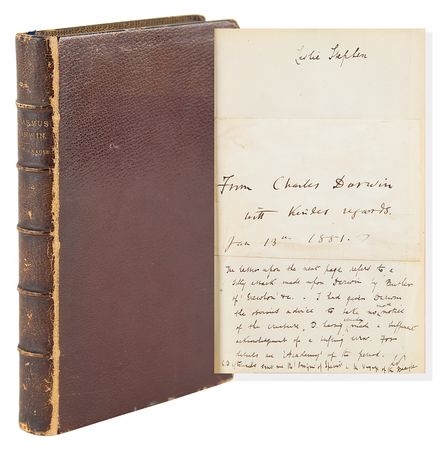 ERASMUS
DARWIN.
KRAUSE
Leslie Stephen
From Charles Darwin
with kindest regards.
Jan 13th 1881.
The letter upon the next page refers to a
silly attack made upon Darwin by Butler
of 'Erewhon' &c. I had given Darwin
the obvious advice to take no more notice
of the creature, D. having already made a sufficient
acknowledgment of a trifling error. For
details see 'Academy' of the period. LS
C.D. afterwards sent me the 'Origin of Species' & the Voyage of the Beagle